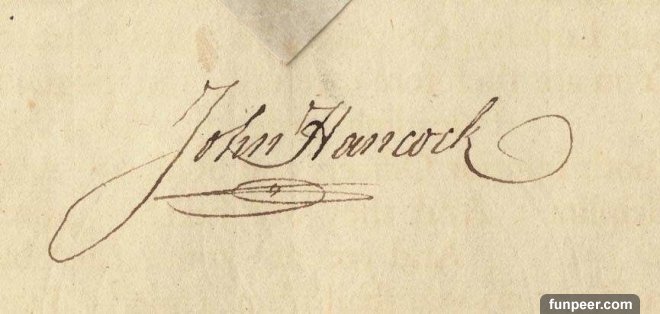 John Hancock
funpeer.com